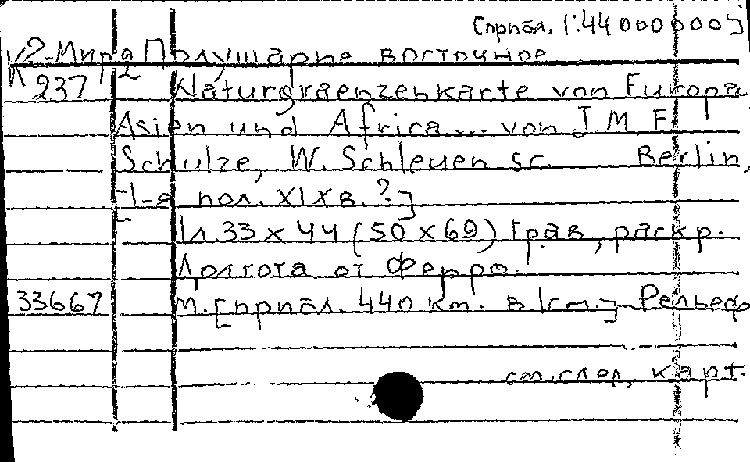 [прибл. 1:44 000 000]
К2-Мира Полушарие восточное
К 237 12
Naturgraenzenkarte von Europa
Asien und Africa... von J M F
Schulze, W. Schleuen sc. Berlin,
[1-я пол. XIX в.?]
1л. 33 x 44 (50 x 69) Грав, раскр.
Долгота от Ферро.
33667 М. [прибл. 440 км. в 1см.] Рельеф
см.след. карт.